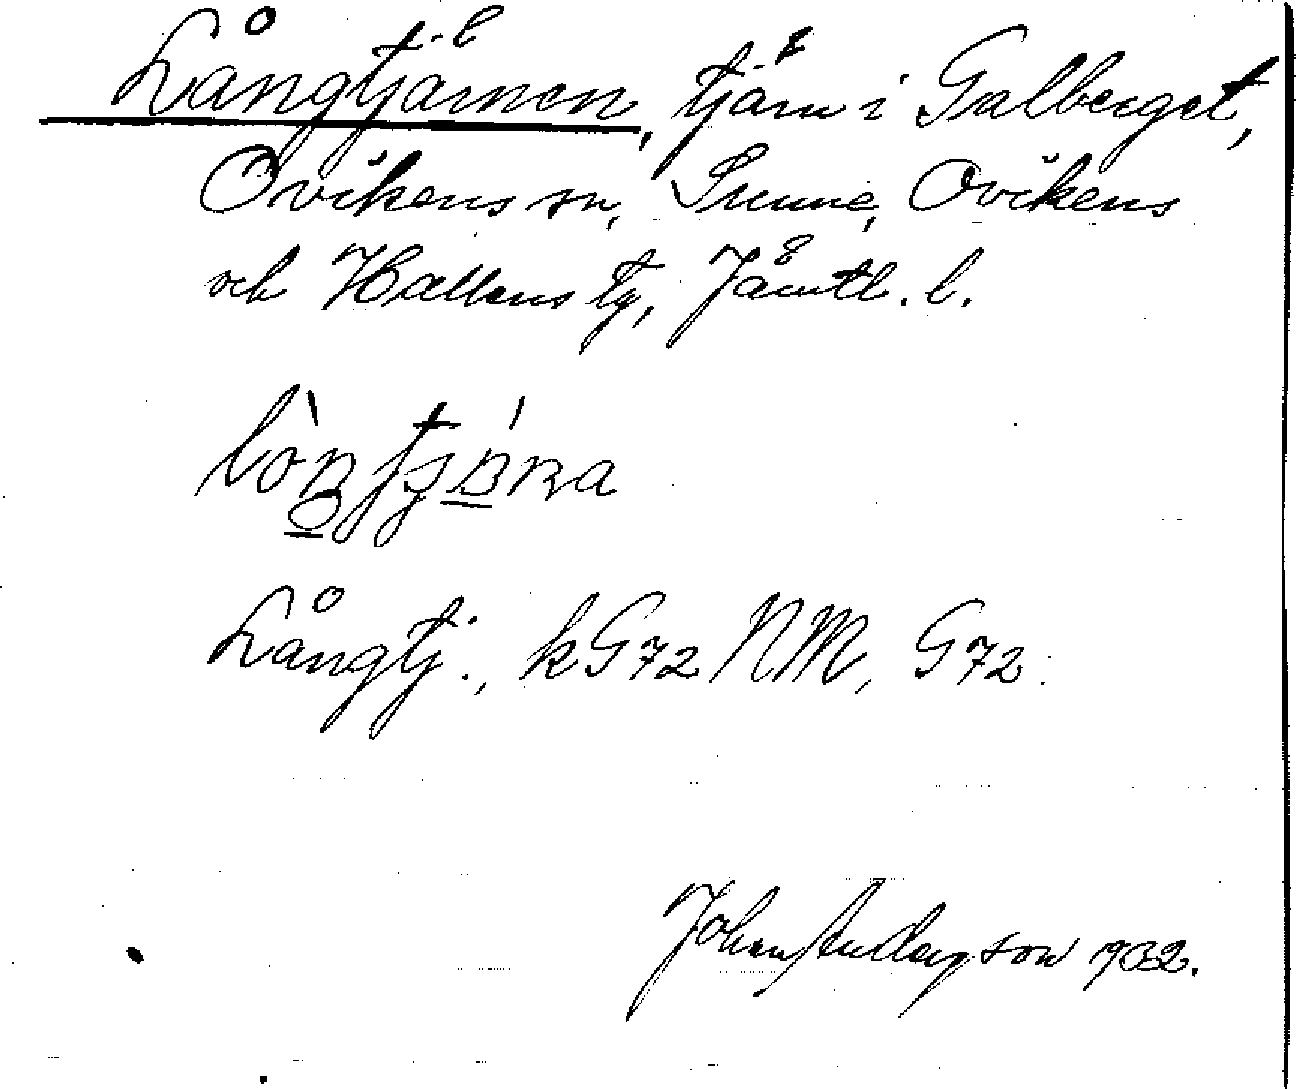 Långtjärnen, tjärn i Galberget,
Ovikens sn, Sunne, Ovikens
och Hallens tg, Jämtl. l.
Långtj., kG72 NM, G72.
Johan Anderson 1932.